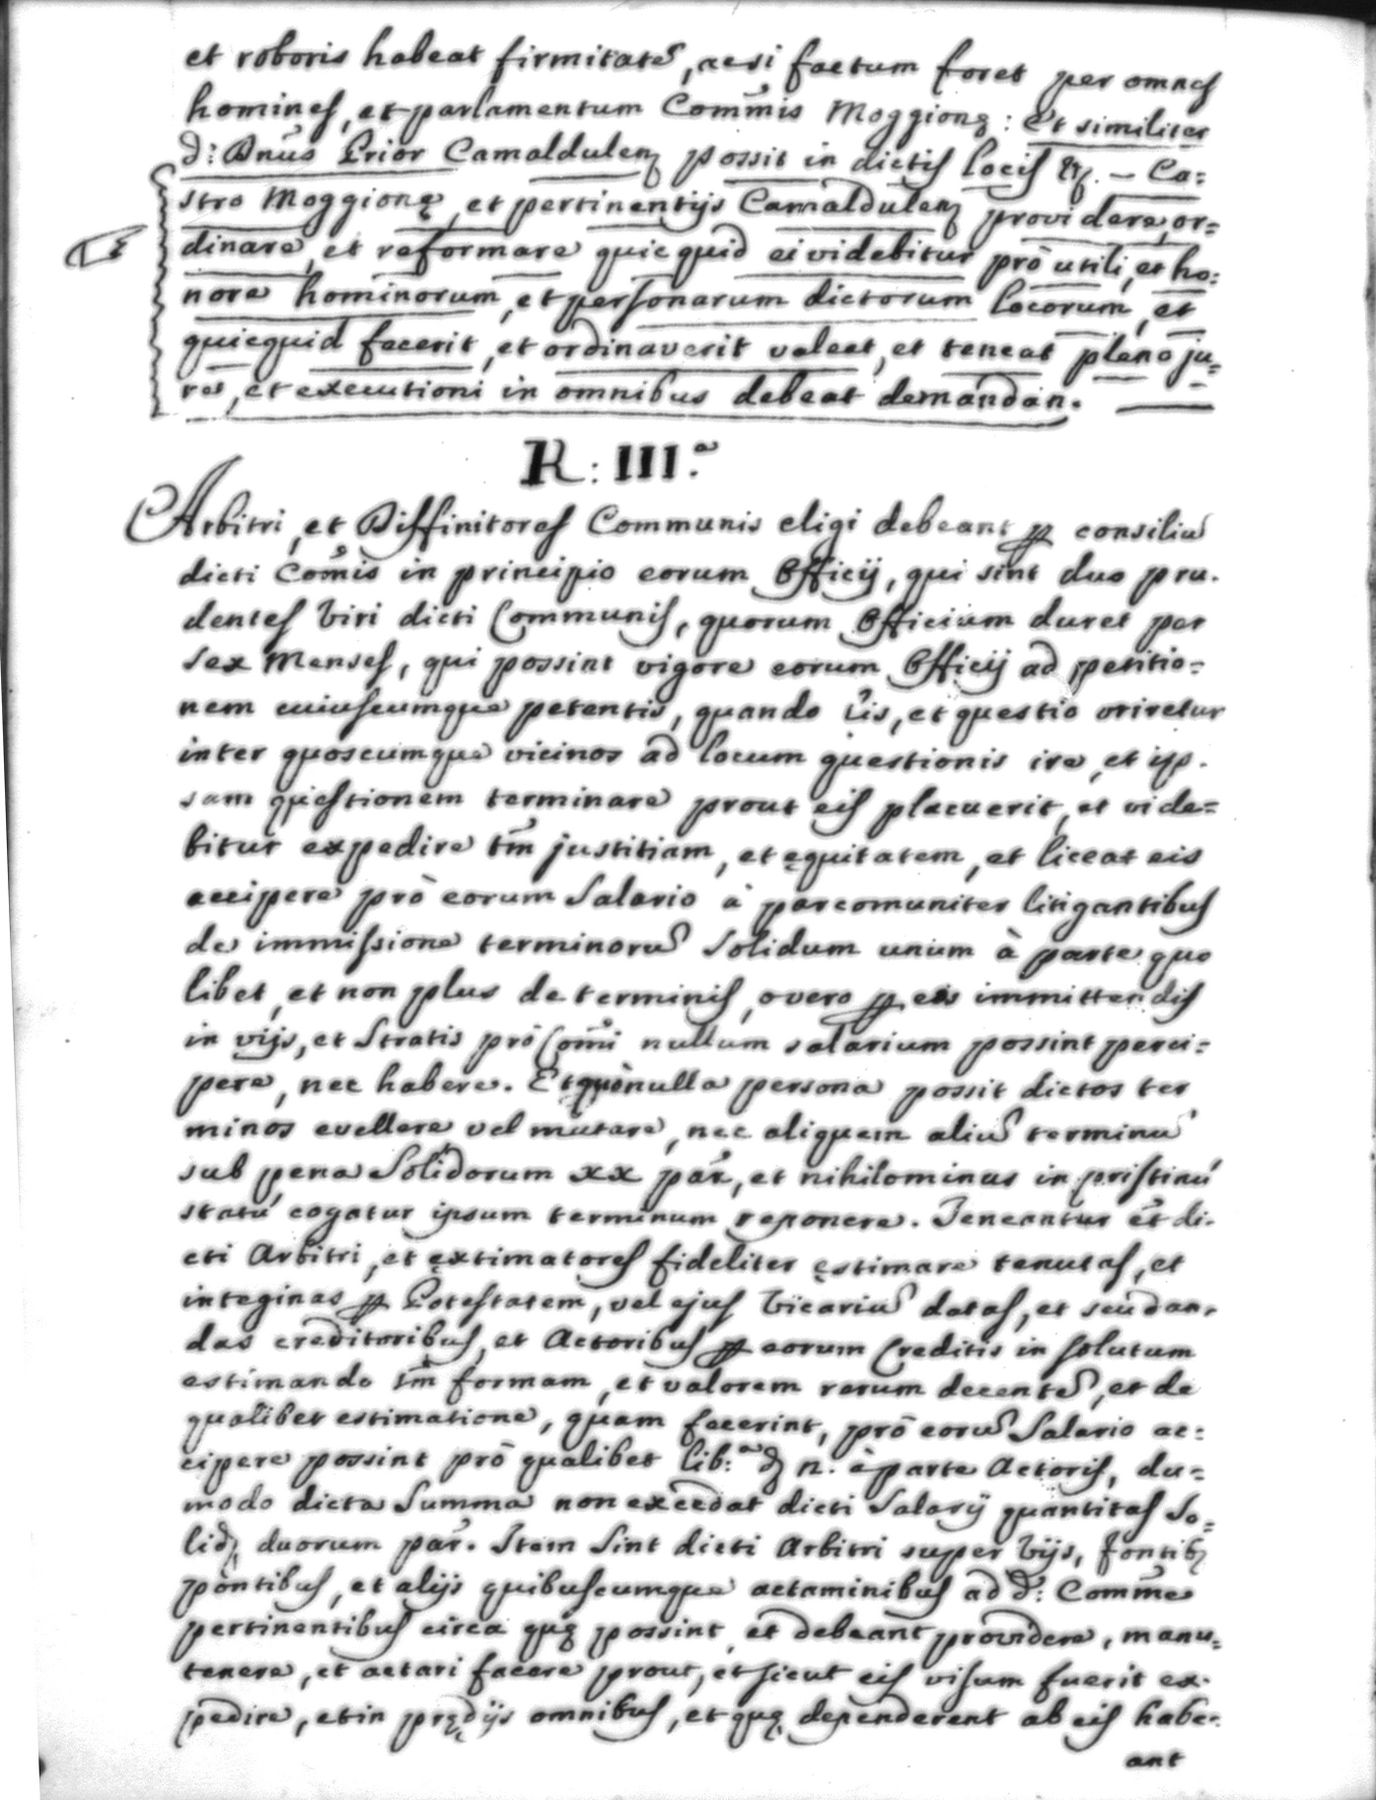 et roboris habeat firmitatẽ, acsi factum foret per omnes
homines, et parlamentum Com̃nis Moggionę: Et similiter
d: Dnũs Prior Camaldulen possit in dictis locis &c. – Ca=
stro Moggionę, et pertinentijs Camaldulen providere, or=
dinare, et reformare quicquid ei videbitur prò utili, et ho=
nore hominorum, et personarum dictorum locorum, et
quicquid fecerit, et ordinaverit valeat, et teneat pleno ju=
re, et executioni in omnibus debeat demandari.
R: III.ª
Arbitri, et Diffinitores Communis eligi debeant ꝑ consiliũ
dicti Com̃is in principio eorum Officij, qui sint duo pru.
dentes Viri dicti Communis, quorum Officium duret per
sex Menses, qui possint vigore eorum Officij ad petitio=
nem cuiuscumque petentis, quando lis, et questio oriretur
inter quoscumque vicinos ad locum questionis ire, et ip.
sam quęstionem terminare prout eis placuerit, et vide=
bitur expedire tm̃ justitiam, et ęquitatem, et liceat eis
accipere prò eorum Salario à parcomuniter litigantibus
de immissione terminorũ Solidum unum à parte qua
libet, et non plus de terminis, overo ꝑ eos immittendis
in vijs, et Stratis prò Com̃i nullum salarium possint perci=
pere, nec habere. Et quò nulla persona possit dictos ter
minos evellere vel mutare, nec aliquem aliũ terminũ
sub pena Solidorum xx par̃, et nihilominus in pristinũ
statũ cogatur ipsum terminum reponere. Teneantur et̃ di.
cti Arbitri, et ęxtimatores fideliter ęstimare tenutas, et
integinas ꝑ Potestatem, vel ejus Vicariũ datas, et seu dan.
das creditoribus, et Actoribus ꝑ eorum Creditis in solutum
estimando tm̃ formam, et valorem rerum decentẽ, et de
qualibet estimatione, quam fecerint, prò eorũ Salario ac=
cipere possint prò qualibet lib:ª d n. à parte Actoris, du=
modo dicta Summa non excedat dicti Salarij quantitas So=
lid, duorum par̃. Item sint dicti Arbitri super Vijs, fontib;
pontibus, et alijs quibuscumque actaminibus ad d: Com̃e
pertinentibus circa quę possint, et debeant providere, manu=
tenere, et actari facere prout, et sicut eis visum fuerit ex.
pedire, et in prędijs omnibus, et quę dependerent ab eis habe.
ant